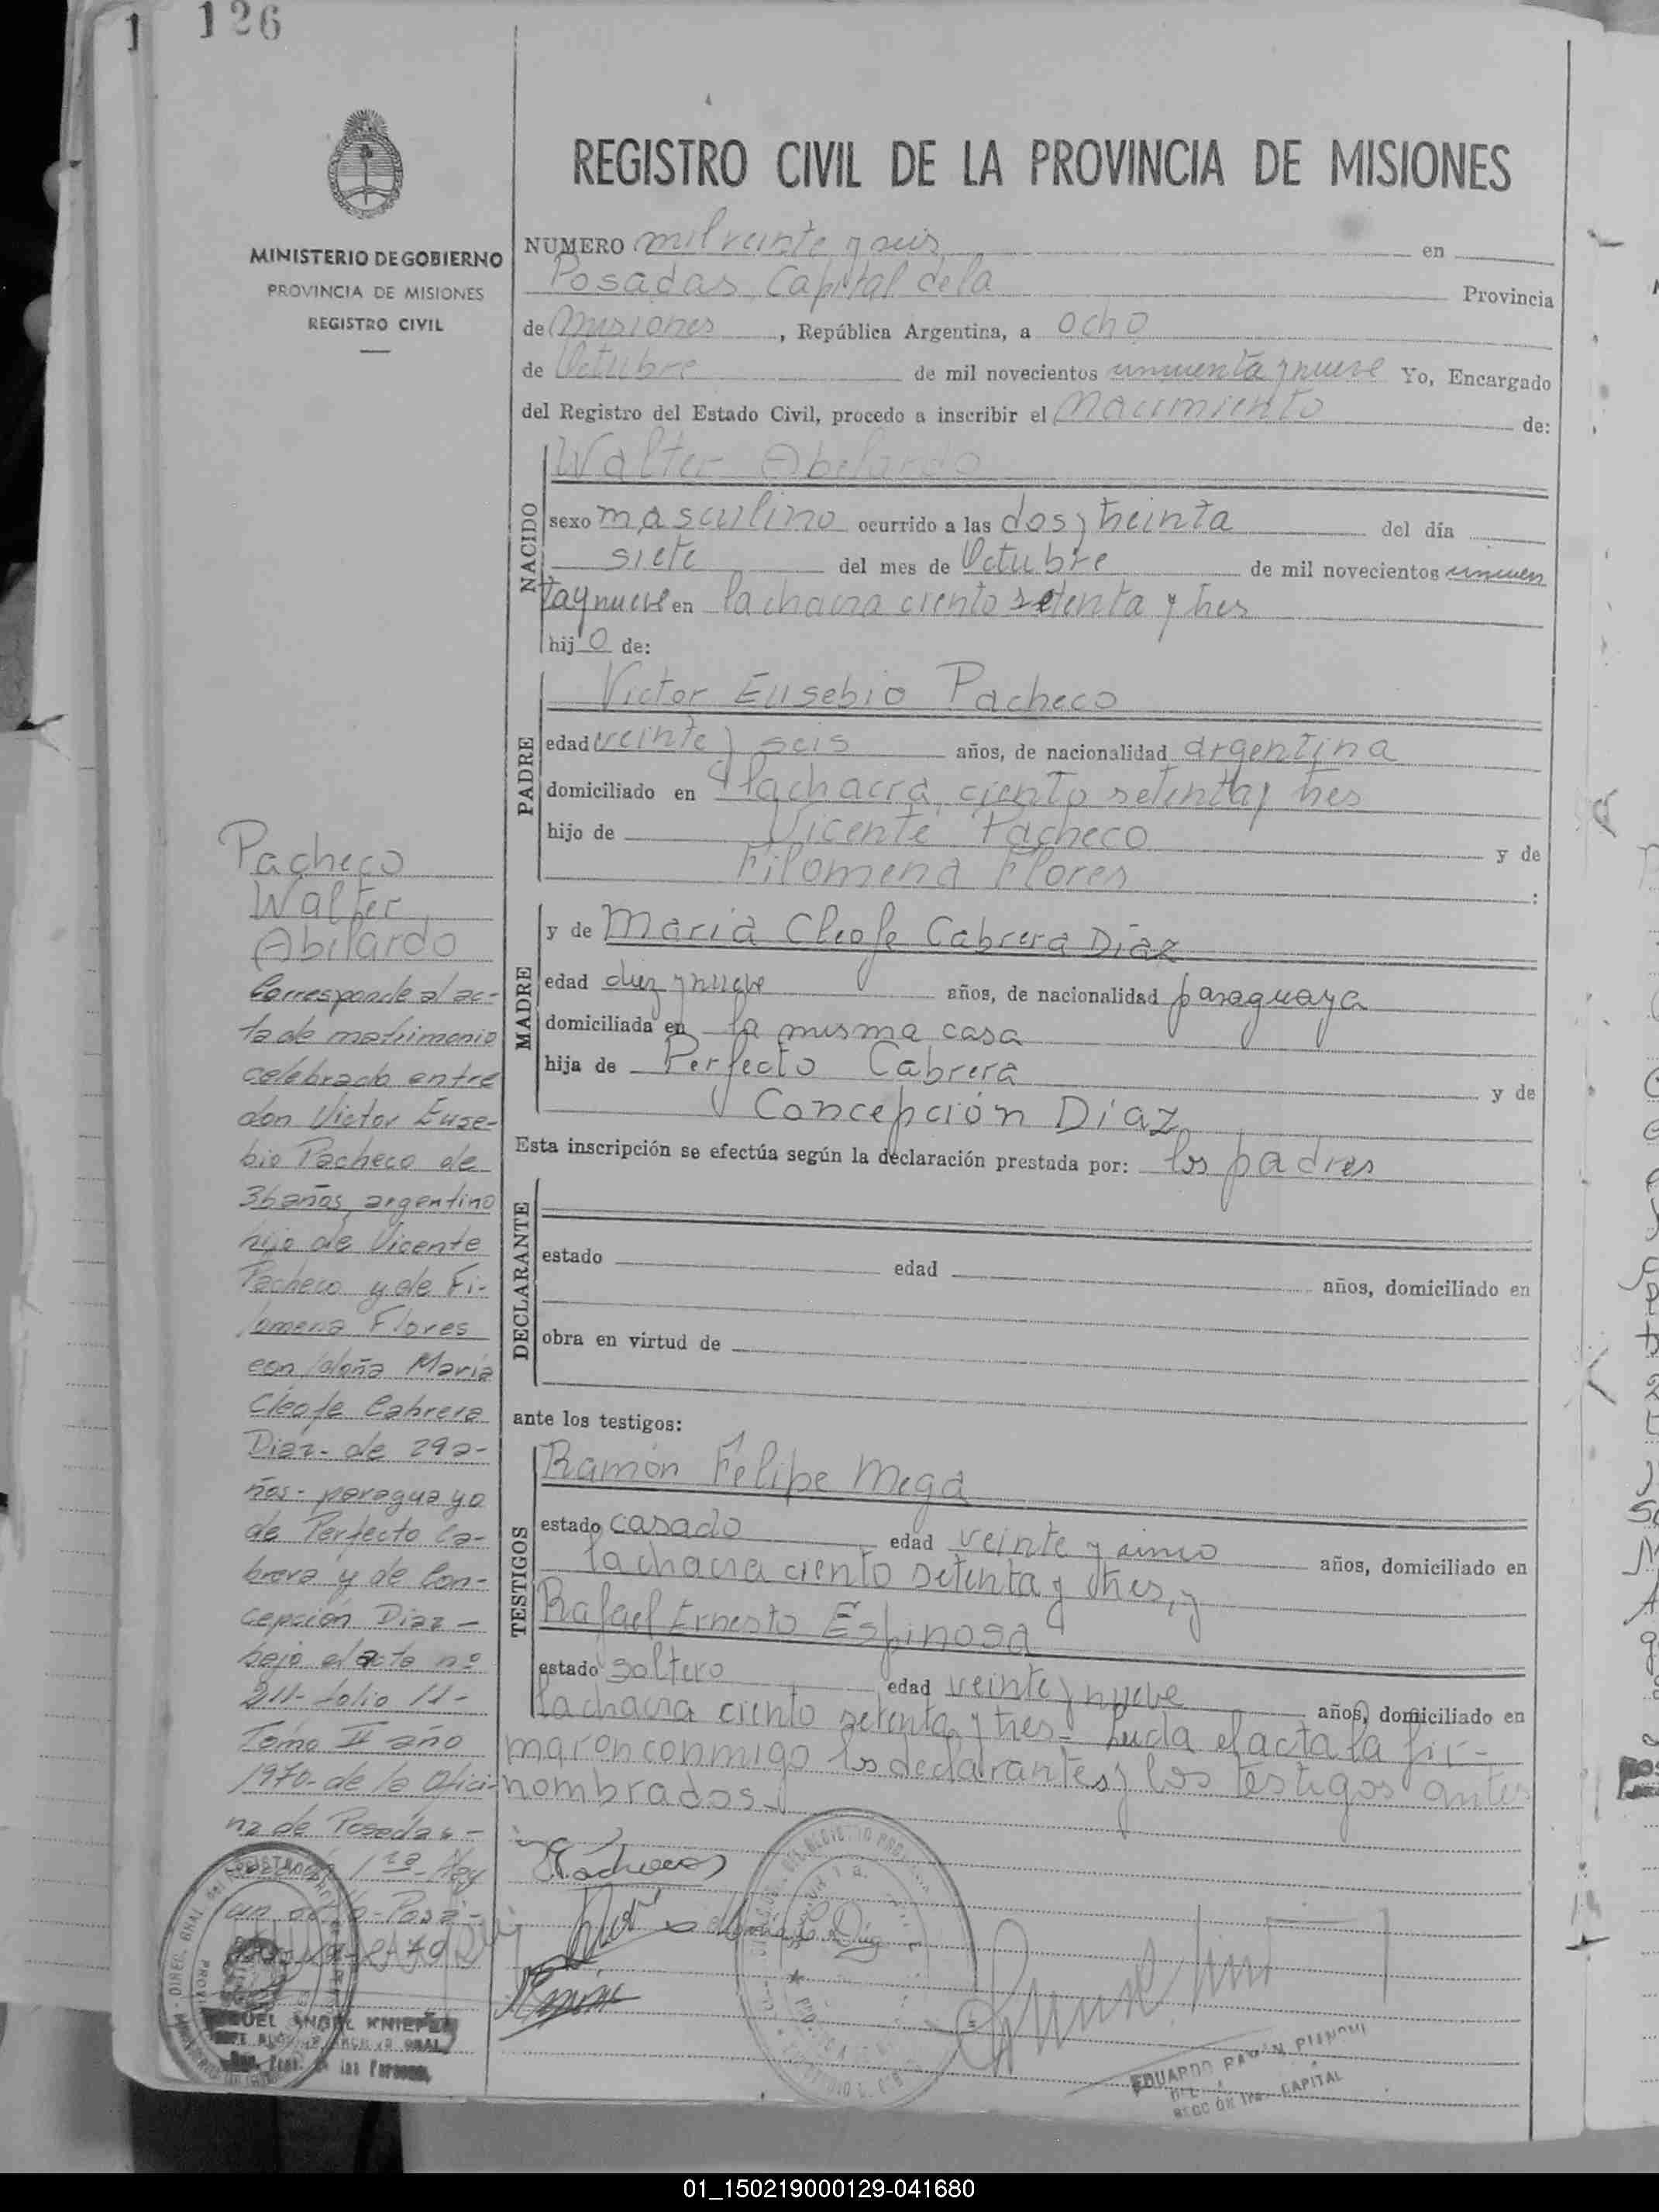 1 126
MINISTERIO DE GOBIERNO
PROVINCIA DE MISIONES
REGISTRO CIVIL
REGISTRO CIVIL DE LA PROVINCIA DE MISIONES
NUMERO mil veinte y seis en
Posadas, Capital de la Provincia
de Misiones, República Argentina, a ocho
de Octubre de mil novecientos cincuenta y nueve Yo, Encargado
del Registro del Estado Civil, procedo a inscribir el Nacimiento de:
NACIDO
Walter Abelardo
sexo masculino ocurrido a las dos y treinta del día
siete del mes de Octubre de mil novecientos cincuen
ta y nueve en la chacra ciento setenta y tres
hijo de:
PADRE
Victor Eusebio Pacheco
edad veinte y seis años, de nacionalidad argentina
domiciliado en la chacra ciento setenta y tres
hijo de Vicente Pacheco y de
Filomena Flores :
MADRE
y de Maria Cleofe Cabrera Diaz
edad diez y nueve años, de nacionalidad paraguaya
domiciliada en la misma casa
hija de Perfecto Cabrera y de
Concepción Diaz
Esta inscripción se efectúa según la declaración prestada por: los padres
DECLARANTE
estado edad años, domiciliado en
obra en virtud de
ante los testigos:
TESTIGOS
Ramón Felipe Mega
estado casado edad veinte y cinco años, domiciliado en
la chacra ciento setenta y tres, y
Rafael Ernesto Espinosa
estado soltero edad veinte y nueve años, domiciliado en
la chacra ciento setenta y tres - Leida el acta la fir-
maron conmigo los declarantes y los testigos antes
nombrados.
Pacheco
Walter
Abelardo
Corresponde al ac-
ta de matrimonio
celebrado entre
don Victor Euse-
bio Pacheco de
36 años, argentino
hijo de Vicente
Pacheco y de Fi-
lomena Flores
con doña Maria
Cleofe Cabrera
Diaz - de 29 a-
ños - paraguaya
de Perfecto Ca-
brera y de Con-
cepción Diaz -
bajo el acta nº
211 - folio 11 -
Tomo II año
1970 - de la Ofici-
na de Posadas -
EDUARDO RAMON PIANOVI
CAPITAL
01_150219000129-041680